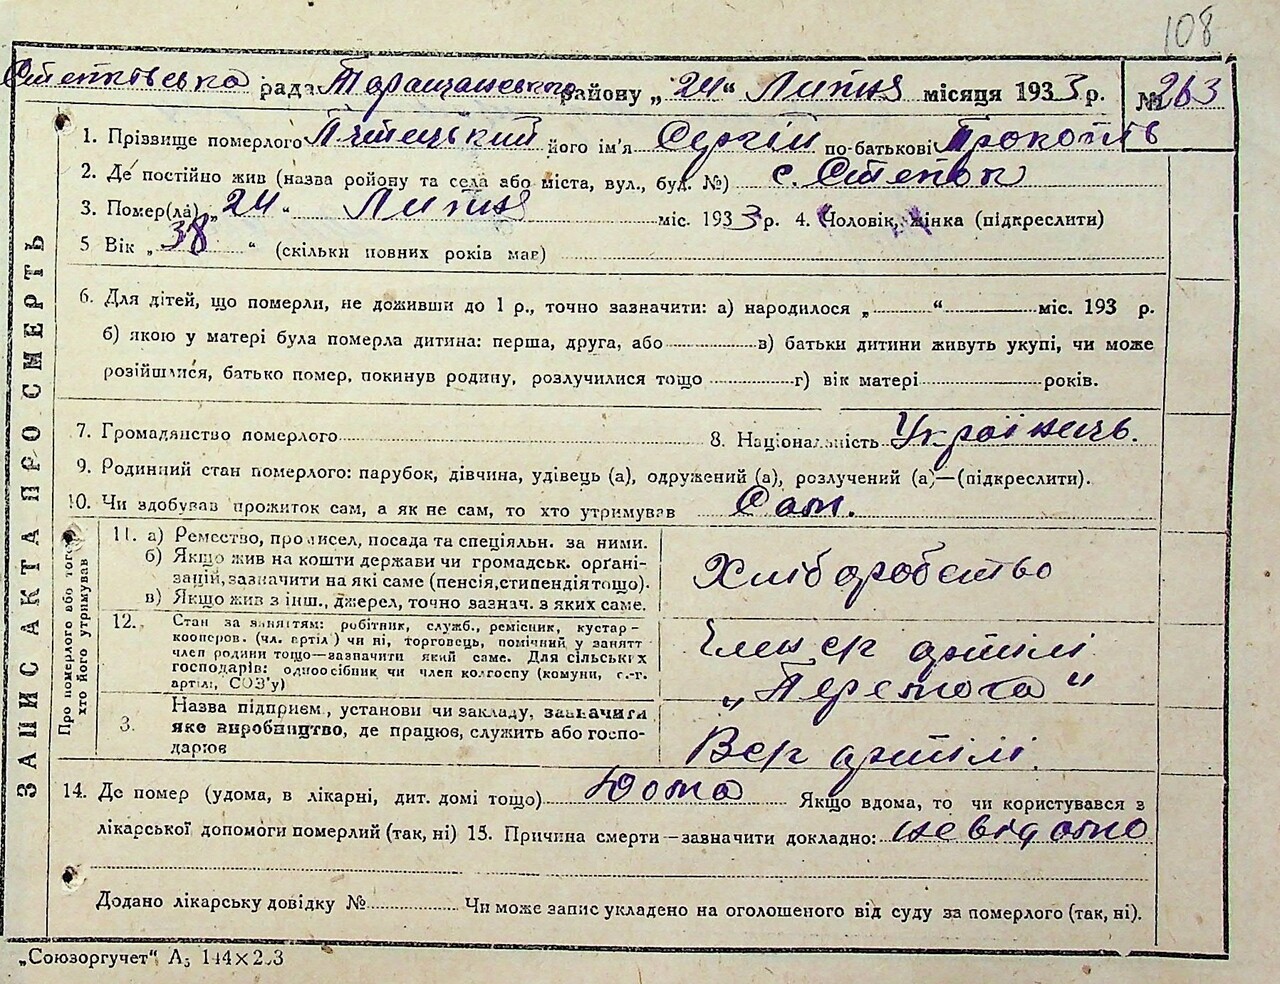 108
Степківська рада Таращанського району „24“ Липня місяця 1933 р. № 263
ЗАПИС АКТА ПРО СМЕРТЬ
1. Прізвище померлого його ім'я Сергій по-батькові Прокопів
2. Де постійно жив (назва району та села або міста, вул., буд. №) с. Степок
3. Помер(ла) „24“ Липня міс. 1933 р. 4. Чоловік, жінка (підкреслити)
5 Вік „38“ (скільки повних років мав)
6. Для дітей, що померли, не доживши до 1 р., точно зазначити: а) народилося „ “ міс. 193 р.
б) якою у матері була померла дитина: перша, друга, або в) батьки дитини живуть укупі, чи може
розійшлися, батько помер, покинув родину, розлучилися тощо г) вік матері років.
7. Громадянство померлого 8. Національність Українець.
9. Родинний стан померлого: парубок, дівчина, удівець (а), одружений (а), розлучений (а)—(підкреслити).
10. Чи здобував прожиток сам, а як не сам, то хто утримував Сам.
Про померлого або того, хто його утримував
11. а) Ремество, промисел, посада та спеціяльн. за ними.
б) Якщо жив на кошти держави чи громадськ. орґані-
зацій, зазначити на які саме (пенсія, стипендія тощо).
в) Якщо жив з інш., джерел, точно зазнач. з яких саме.
Хліборобство
12. Стан за заняттям: робітник, служб., ремісник, кустар-
кооперов. (чл. артіл) чи ні, торговець, помічний у занятт
член родини тощо—зазначити який саме. Для сільських
господарів: одноосібник чи член колгоспу (комуни, с.-г.
артілі, СОЗ'у)
Член с/г артілі
„Перемога“
3. Назва підприєм., установи чи закладу, зазначити
яке виробництво, де працює, служить або госпо-
дарює
В с/г артілі.
14. Де помер (удома, в лікарні, дит. домі тощо) Дома Якщо вдома, то чи користувався з
лікарської допомоги померлий (так, ні) 15. Причина смерти—зазначити докладно: невідомо
Додано лікарську довідку № Чи може запис укладено на оголошеного від суду за померлого (так, ні).
„Союзоргучет“ А5 144×203